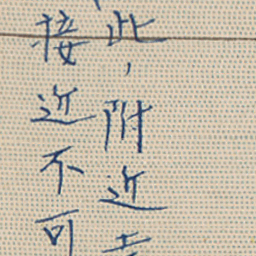 此,附近
接近不可